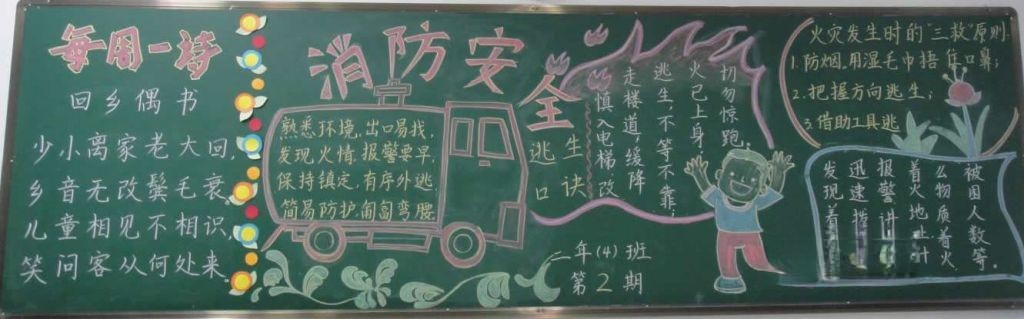 每周一诗
回乡偶书
少小离家老大回,
乡音无改鬓毛衰,
儿童相见不相识,
笑问客从何处来.
消防安全
逃生口诀
熟悉环境,出口易找,
发现火情,报警要早,
保持镇定,有序外逃,
简易防护,匍匐弯腰
慎入电梯,改
走楼道,缓降
逃生,不等不靠;
火已上身,
切勿惊跑.
二年(4)班
第2期
火灾发生时的"三救"原则
1.防烟,用湿毛巾捂住口鼻;
2.把握方向逃生;
3.借助工具逃
发现着
迅速拨
报警讲
着火地
么物质着火
被困人数等.